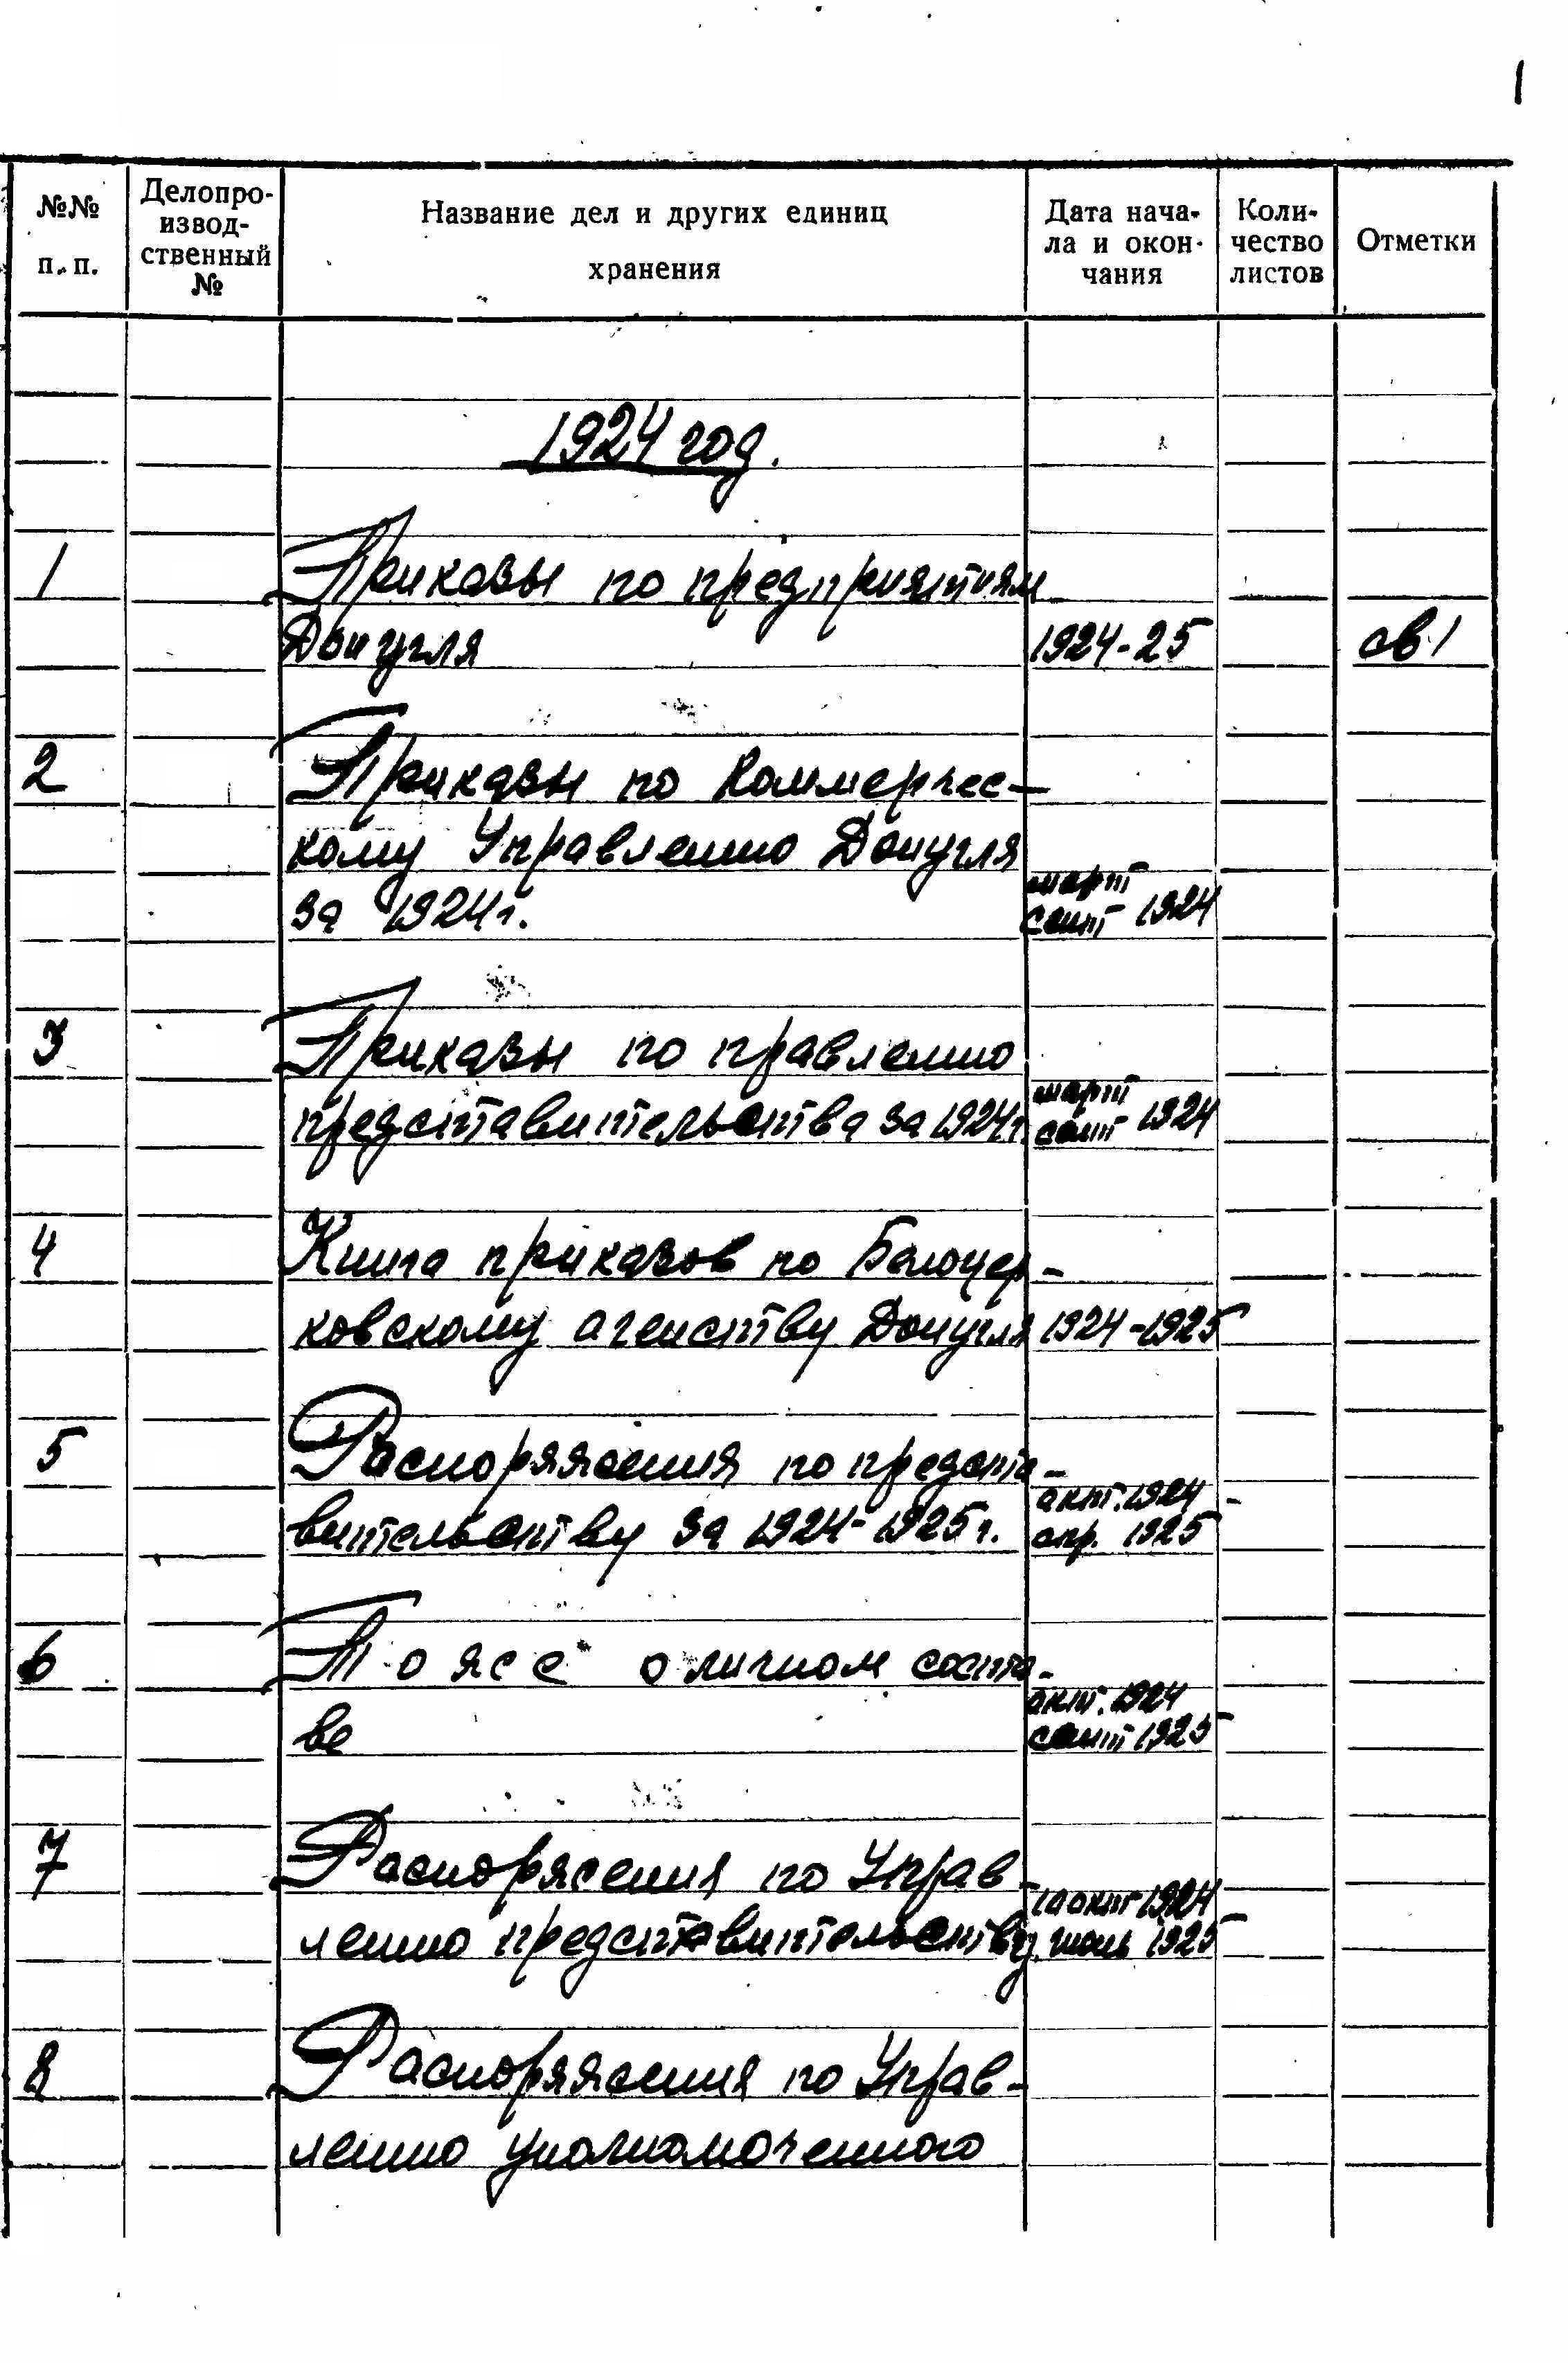 1
№№ п. п.
Делопро-
извод-
ственный
№
Название дел и других единиц
хранения
Дата нача-
ла и окон-
чания
Коли-
чество
листов
Отметки
1924 год.
1 Приказы по предприятиям
Донугля 1924-25 св 1
2 Приказы по Коммерчес-
кому Управлению Донугля
март
за 1924 г. сент 1924
3 Приказы по правлению
март
представительства за 1924 г. сент 1924
4 Книга приказов по Белоцер-
ковскому агенству Донугля 1924-1925
5 Распоряжения по предста-
окт. 1924 -
вительству за 1924-1925 г. апр. 1925
6 То же о личном соста-
окт. 1924 -
ве сент 1925
7 Распоряжения по Управ-
10 окт 1924 -
лению представительству июнь 1925
8 Распоряжения по Управ-
лению уполномоченного